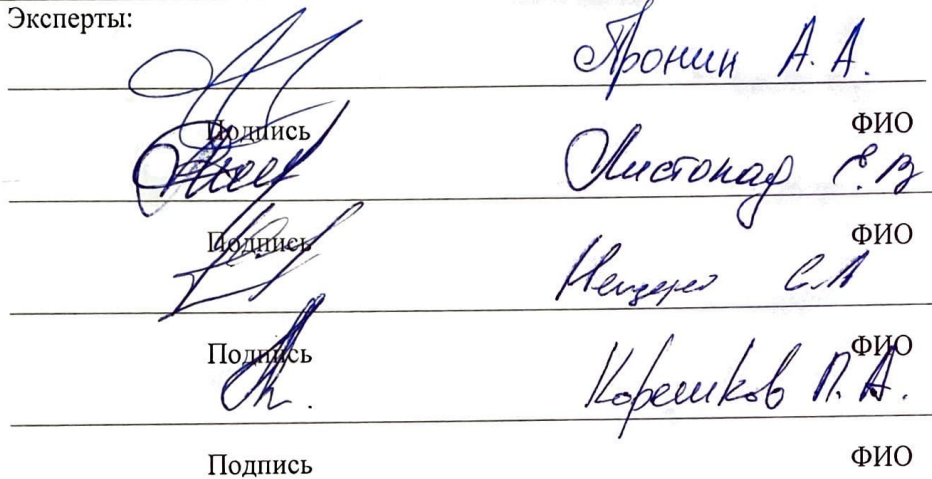 Эксперты:
Пронин А. А.
Подпись ФИО
Листопад Е. В
Подпись ФИО
С.А
Подпись ФИО
Корешков П. А.
Подпись ФИО